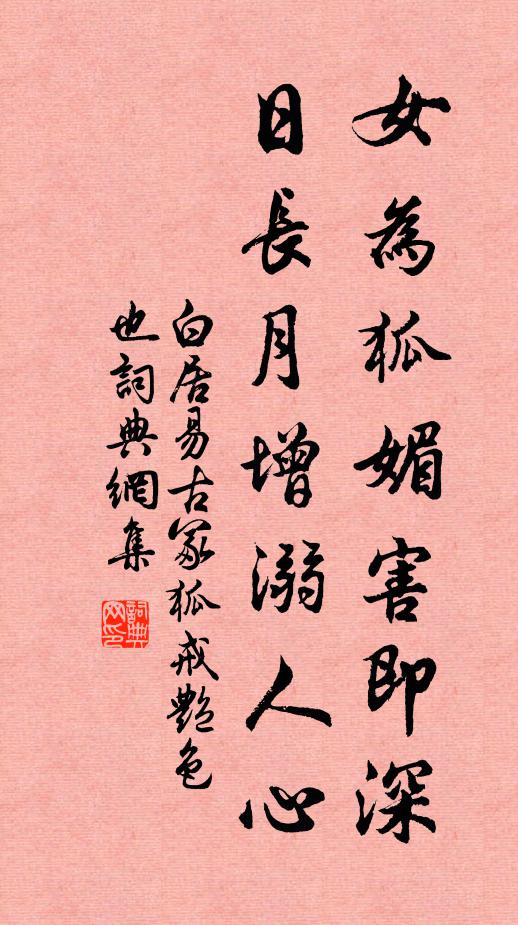 女為狐媚害即深
日長月增溺人心
白居易古冢狐戒艷色
也詞典網集
詞典
网印